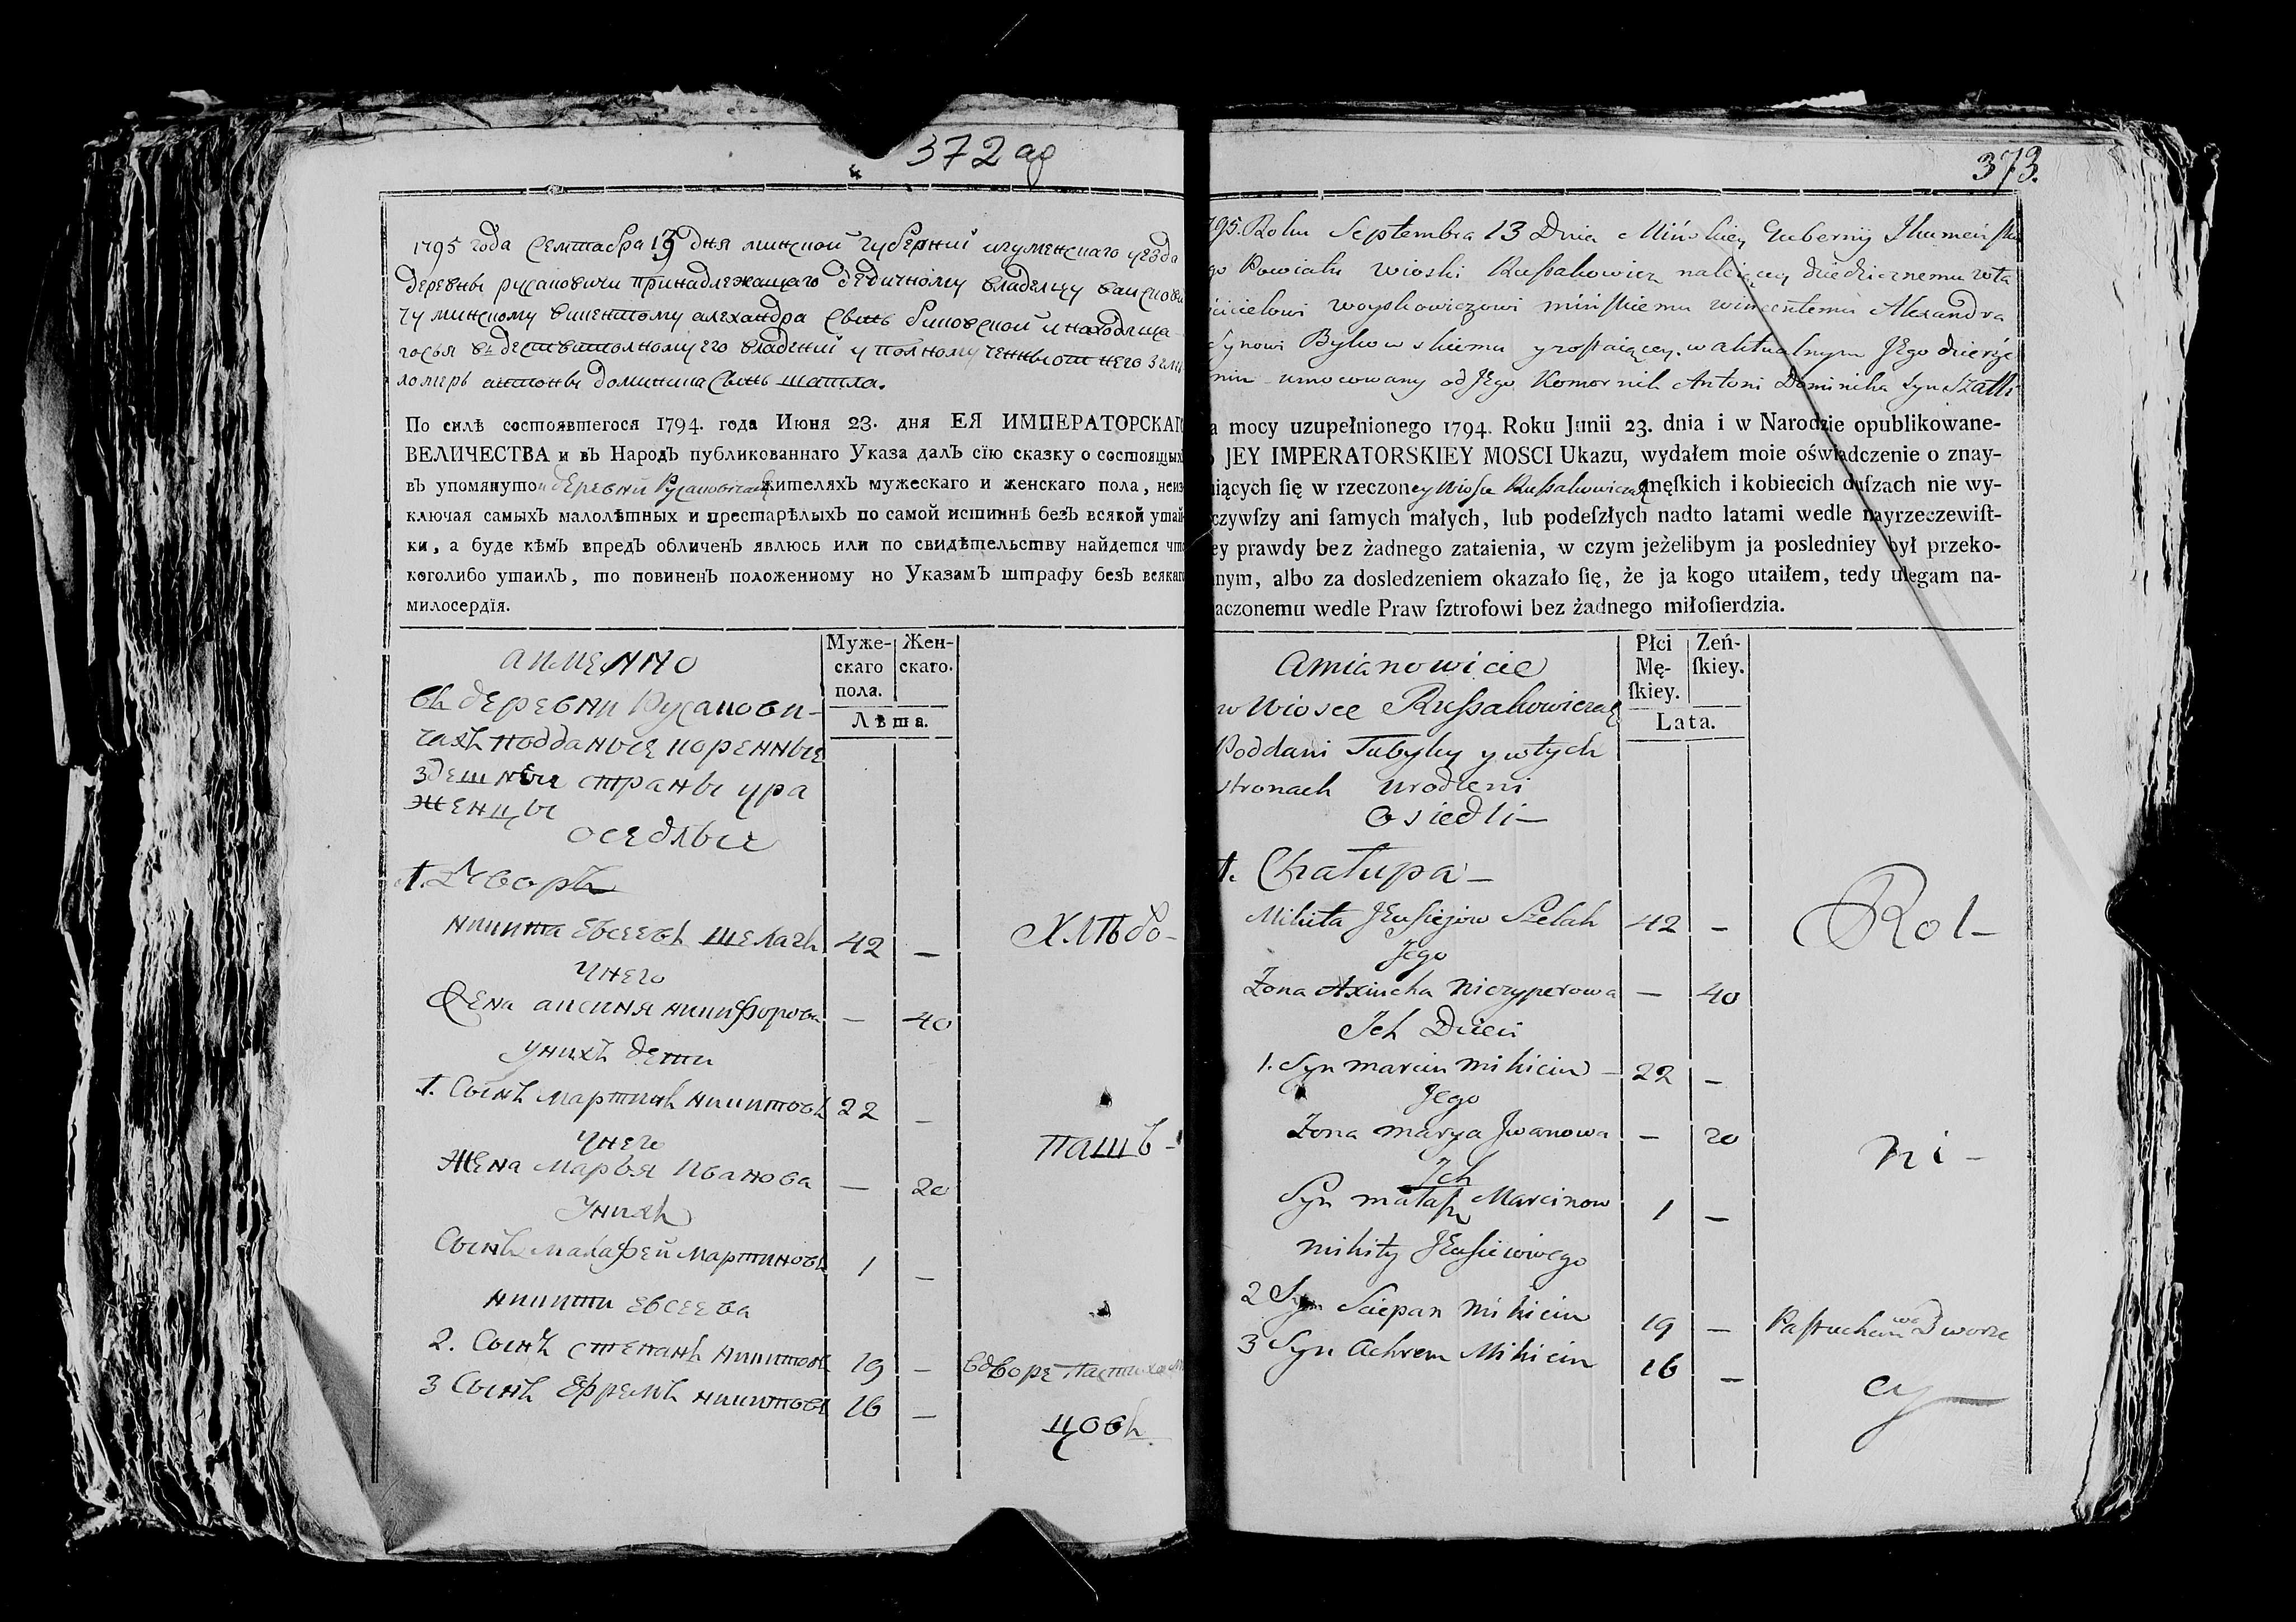 372 об
1795 года Сентебра 13 дня минской губернии игуменскаго уезда
деревны русаковичи принадлежащаго дедичному владелцу воискови
чу минскому винентому александра сынъ биковской инаходяща
госья въ деств владении у него земли
ломиръ антоны доминика сынъ шатила.
По силѣ состоявшегося 1794. года Июня 23. дня ЕЯ ИМПЕРАТОРСКАГ
ВЕЛИЧЕСТВА и въ Народъ публикованнаго Указа далъ сїю сказку о состоящыхъ
въ упомянутой деревни Русаковичахъ жителяхъ мужескаго и женскаго пола, неиз
ключая самыхъ малолѣтных и престарѣлыхъ по самой истиннѣ безъ всякой утай
ки, а буде кѣмъ впредъ обличенъ явлюсь или по свидѣтельству найдется что
коголибо утаилъ, то повиненъ положенному по Указамъ штрафу безъ всякаго
милосердїя.
Муже-
скаго
пола.
Жен-
скаго.
Лѣта.
аименно
въ деревни Русакови-
чахъ подданые коренные
здешнеи страны ура
женцы
оседлые
1. Дворъ
никита Евсеевъ шелагъ 42 —
Хлѣбо-
Унего
Жена аксиня никифорова — 40
унихъ дети
1. Сынъ мартинъ никитовъ 22 —
Унего
Жена Марья Иванова — 20
пашь-
Унихъ
Сынъ Матфей Мартиновъ 1 —
никиты Евсеева
2. Сынъ степанъ никитовъ 19 — вдворе пастухомъ
3 Сынъ Ефремъ никитовъ 16 —
цовъ
373.
795. Roku Septembra 13 Dnia Mińskiey Gubernij Ihumeńskie
go Powiatu Wioski Russakowicz należącey dziedzicznemu wła
ścicielowi woyskowiczowi mińskiemu wincentemu Alexandra
Synowi Bykowskiemu y zostaiącey w aktualnym Jego dzierże
niu umocowany od Jego Komornik Antoni Dominika Syn Szatti
a mocy uzupełnionego 1794. Roku Junii 23. dnia i w Narodzie opublikowane-
JEY IMPERATORSKIEY MOSCI Ukazu, wydałem moie oświadczenie o znay-
iących ſię w rzeczoney Wiosce Russakowiczach męſkich i kobiecich duſzach nie wy-
czywſzy ani ſamych małych, lub podeſzłych nadto latami wedle nayrzeczewiſt-
ey prawdy bez żadnego zataienia, w czym jeżelibym ja posledniey był przeko-
nym, albo za dosledzeniem okazało ſię, że ja kogo utaiłem, tedy ulegam na-
aczonemu wedle Praw ſztrofowi bez żadnego miłoſierdzia.
Płci
Mę-
ſkiey.
Zeń-
ſkiey.
Lata.
Amianowicie
w Wiosce Russakowiczach
Poddani Tubylcy y wtych
stronach urodzeni
Osiedli —
1. Chałupa —
Mikita Jeusiejow Szelah 42 —
Rol-
Jego
Zona Axiucha Niczyperowa — 40
Ich Dzieci
1. Syn Marcin Mikicin — 22 —
Jego
Zona Marya Jwanowa — 20
ni-
Ich
Syn Matafiey Marcinow 1 —
Mikity Jeusiewiego
2 Syn Sciepan Mikicin 19 — Pastuchem we Dworze
3 Syn Achrem Mikicin 16 —
cy